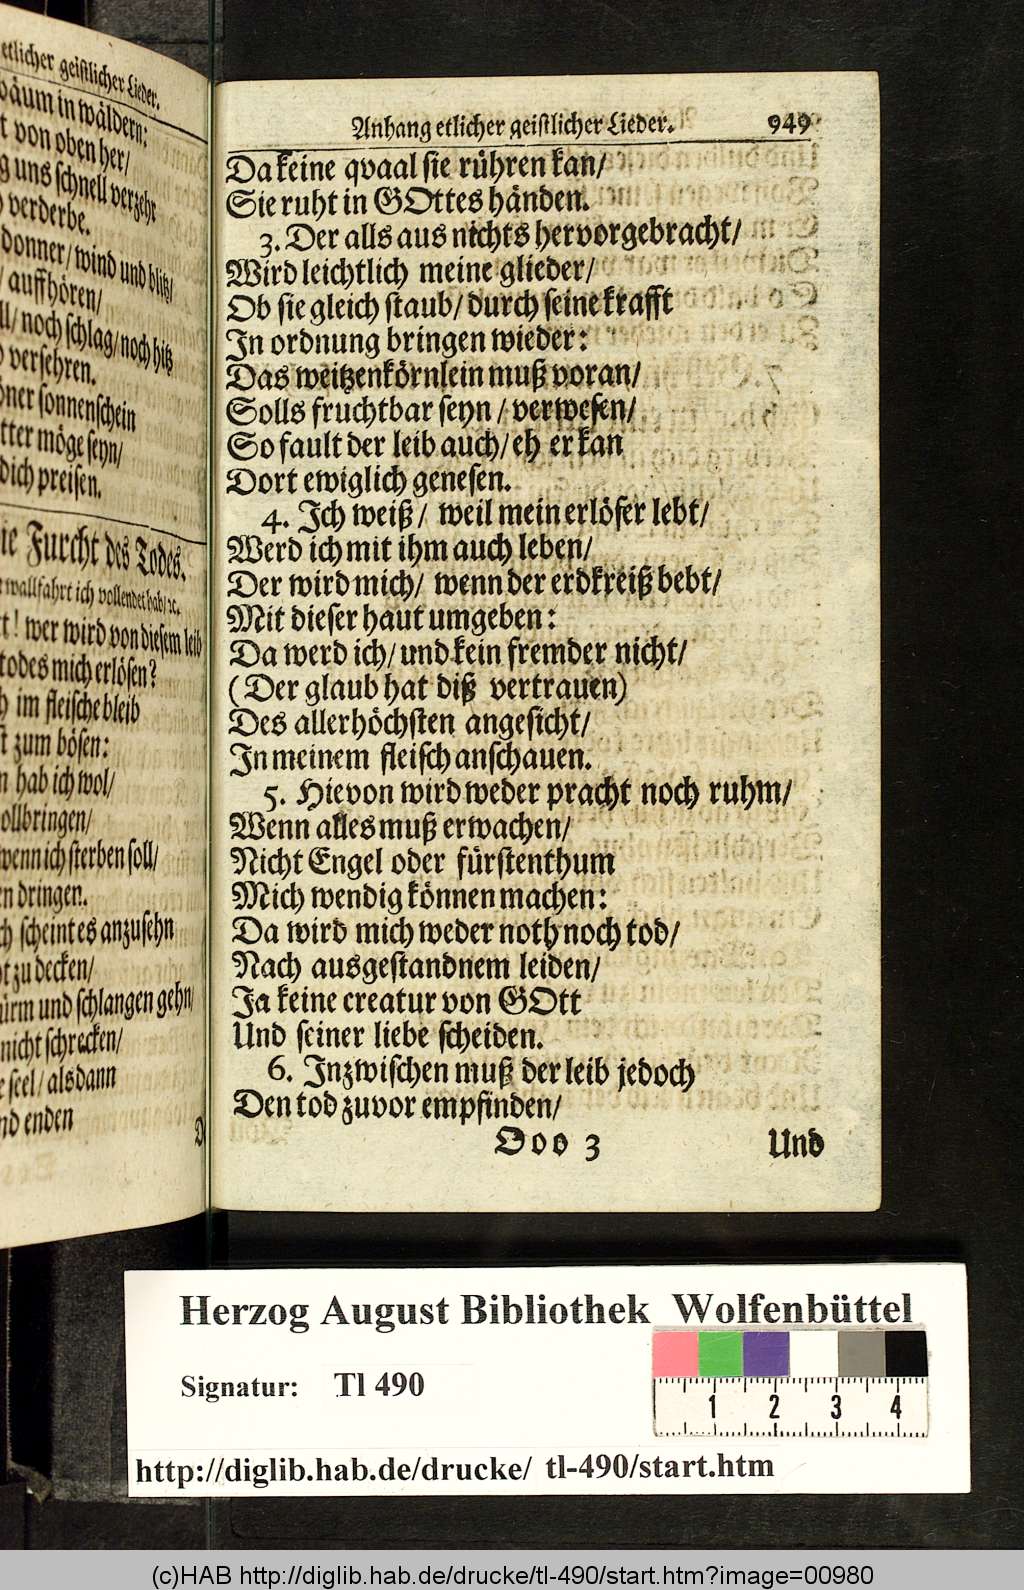 etlicher geistlicher Lieder.
bäum in wäldern:
von oben her/
uns schnell verzehr
verderbe.
donner/ wind und blitz/
auffhören/
noch schlag/ noch hitz
versehren.
sonnenschein
möge seyn/
dich preisen.
Furcht des Todes.
wallfahrt ich vollendet hab/ ꝛc.
wer wird von diesem leib
todes mich erlösen?
im fleische bleib
zum bösen:
hab ich wol/
wenn ich sterben soll/
dringen.
scheint es anzusehn
zu decken/
und schlangen gehn/
nicht schrecken/
seel/ alsdann
enden
Anhang etlicher geistlicher Lieder. 949
Da keine qvaal sie rühren kan/
Sie ruht in GOttes händen.
3. Der alls aus nichts hervorgebracht/
Wird leichtlich meine glieder/
Ob sie gleich staub/ durch seine krafft
In ordnung bringen wieder:
Das weitzenkörnlein muß voran/
Solls fruchtbar seyn/ verwesen/
So fault der leib auch/ eh er kan
Dort ewiglich genesen.
4. Ich weiß/ weil mein erlöser lebt/
Werd ich mit ihm auch leben/
Der wird mich/ wenn der erdkreiß bebt/
Mit dieser haut umgeben:
Da werd ich/ und kein fremder nicht/
(Der glaub hat diß vertrauen)
Des allerhöchsten angesicht/
In meinem fleisch anschauen.
5. Hievon wird weder pracht noch ruhm/
Wenn alles muß erwachen/
Nicht Engel oder fürstenthum
Mich wendig können machen:
Da wird mich weder noth noch tod/
Nach ausgestandnem leiden/
Ja keine creatur von GOtt
Und seiner liebe scheiden.
6. Inzwischen muß der leib jedoch
Den tod zuvor empfinden/
Ooo 3 Und
Herzog August Bibliothek Wolfenbüttel
Signatur: Tl 490
1 2 3 4
http://diglib.hab.de/drucke/ tl-490/start.htm
(c)HAB http://diglib.hab.de/drucke/tl-490/start.htm?image=00980